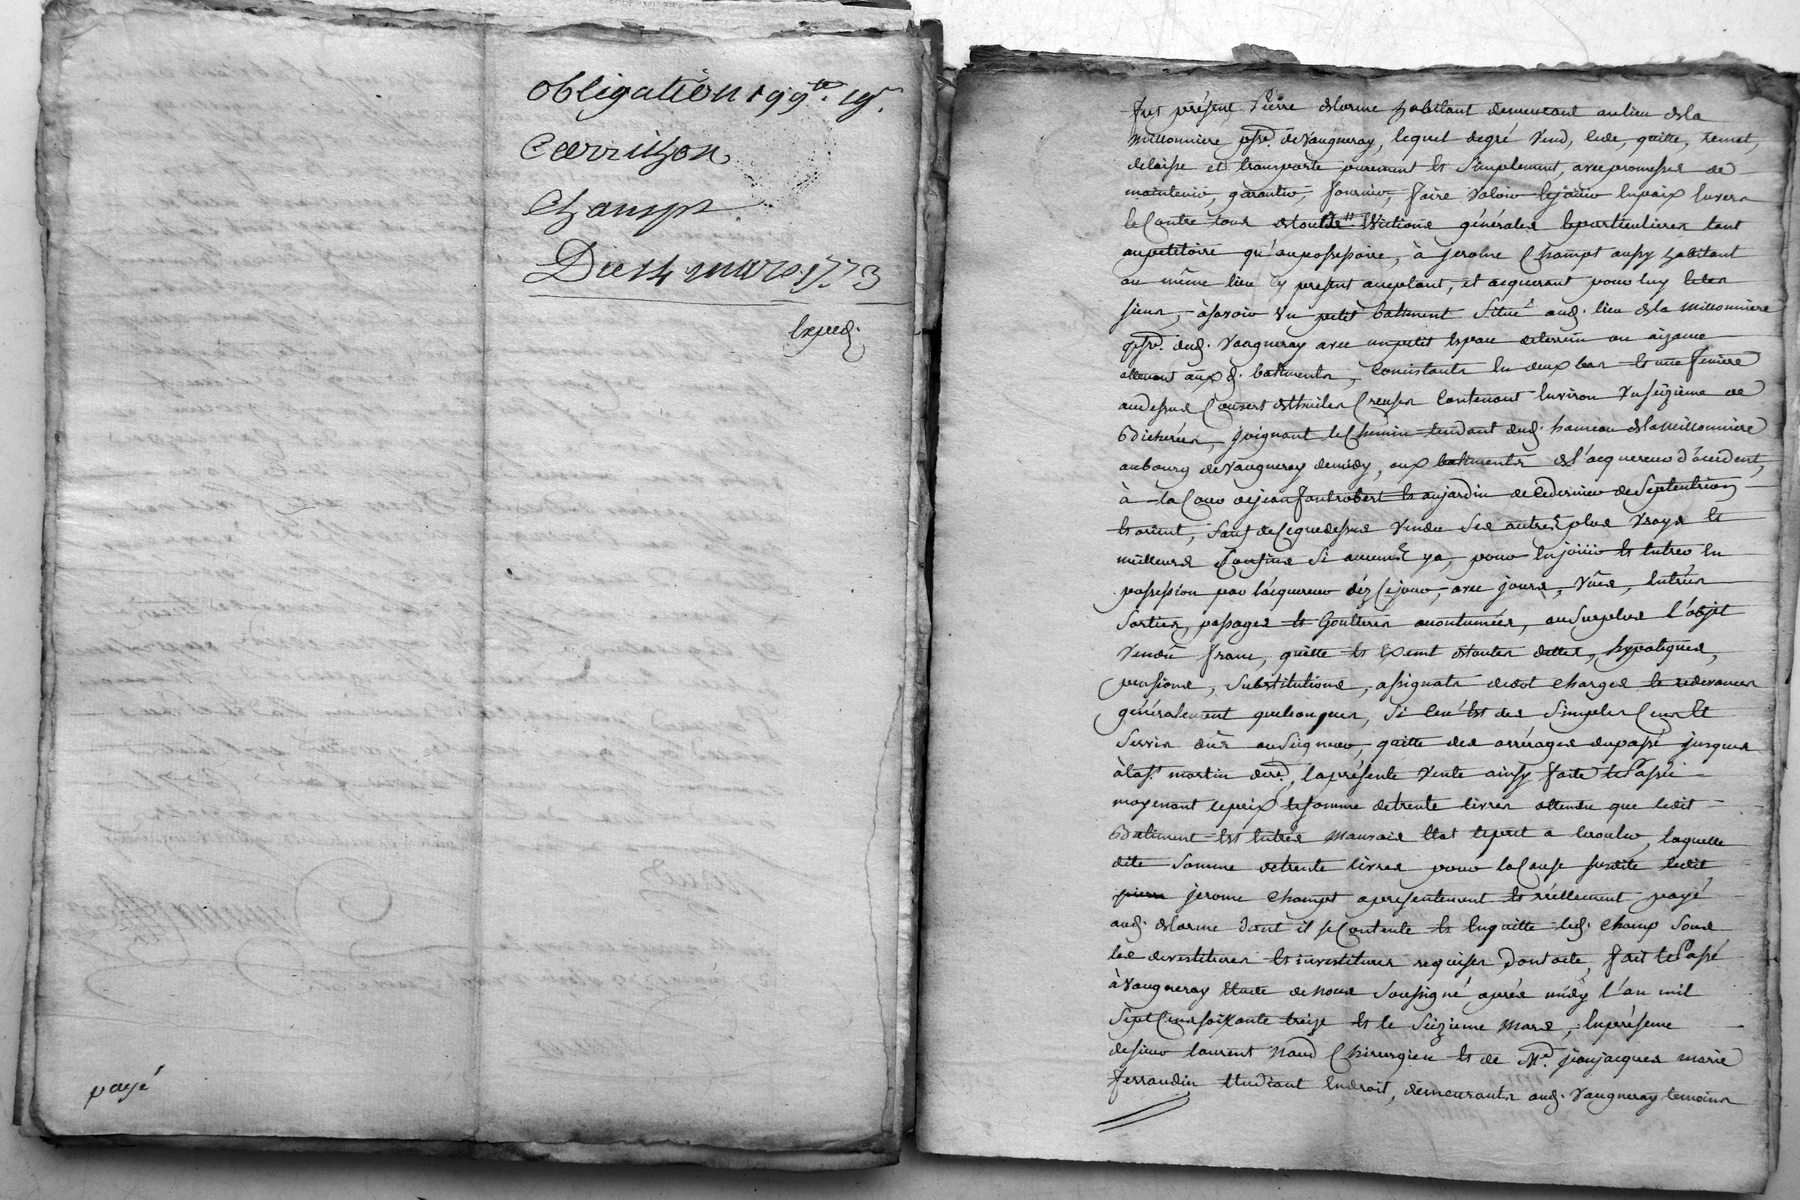 obligation 199 lt. 19 s.
Carrichon
Champt
Du 14 mars 1773
Exped.
payé
Fut présent Pierre delorme habitant demeurant au lieu dela
Millonniere psse. de Vaugneray, lequel degré vend, cede, quitte, remet,
delaisse et transporte purement et Simplement, avec promesse de
maintenir, garantir, fournir, faire valoir et jouir en paix envers
et Contre tous et toutes Evictions générales et particulieres tant
au petitoire qu'au possessoire, à jerome Champt aussy habitant
au même lieu Cy present acceptant, et acquerant pour luy et les
siens, à savoir un petit batiment Situé aud. lieu dela Millonniere
psse. dud. Vaugneray avec un petit espace de terrein ou aizance
attenant aux d. batiments, Consistants en deux bas et une feniere
audessus Couvert de thuiles Creuses Contenant Environ un Seizieme de
Bicherée, joignant le Chemin tendant dud. hameau dela Millonniere
au bourg de Vaugneray de midy, aux batiments de l'acquereur d'occident,
à la Cour de jean et au jardin de Ce dernier de Septentrion
et orient, Sauf de Ce que dessus vendu Ses autres plus vrays et
meilleurs Confins Si aucuns y a, pour En jouir et entrer En
possession par l'acquereur dez Ce jour, avec jours, vües, Entrées
Sorties, passages et Goutteres accoutumées, au Surplus l'objet
vendu franc, quitte et Exempt de toutes dettes, hypoteques,
pensions, Substitutions, assignats de dot charges et redevances
généralement quelconques, Si Ce n'est des Simples Cens Et
Servis dûs au Seigneur, quitte des arrérages du passé jusques
à la St. martin dere., la présente vente ainsy faite et Passée
moyenant le prix et Somme de trente livres attendu que ledit
Batiment Est En très mauvais Etat et pret a Ecrouler, laquelle
dite Somme de trente livres pour la Cause Susdite ledit
jerome Champt a presentement et réellement payé
aud. delorme dont il se Contente et En quitte led. Champt Sous
les devestitures et investitures requises dont acte, fait et Passé
à Vaugneray Etude de Nous Soussigné après midy l'an mil
Sept Cent soixante treize et le Seizieme Mars, En présence
de sieur Laurent Naud Chirurgien et de Me. jean jacques marie
Ferrandin Etudiant En droit, demeurants aud. Vaugneray temoins